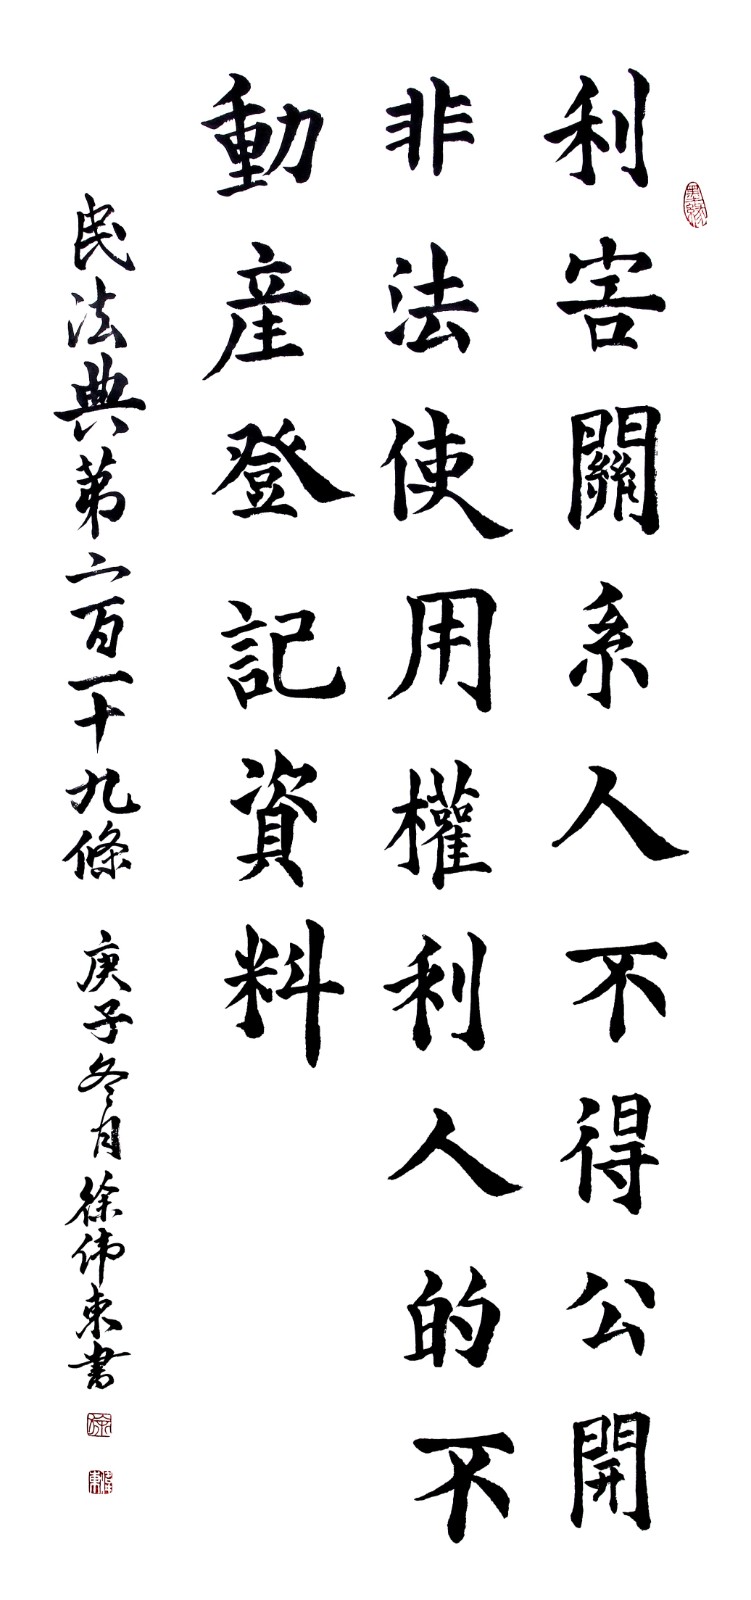 利害關系人不得公開
非法使用權利人的不
動産登記資料
民法典第二百一十九條 庚子冬月徐伟東書